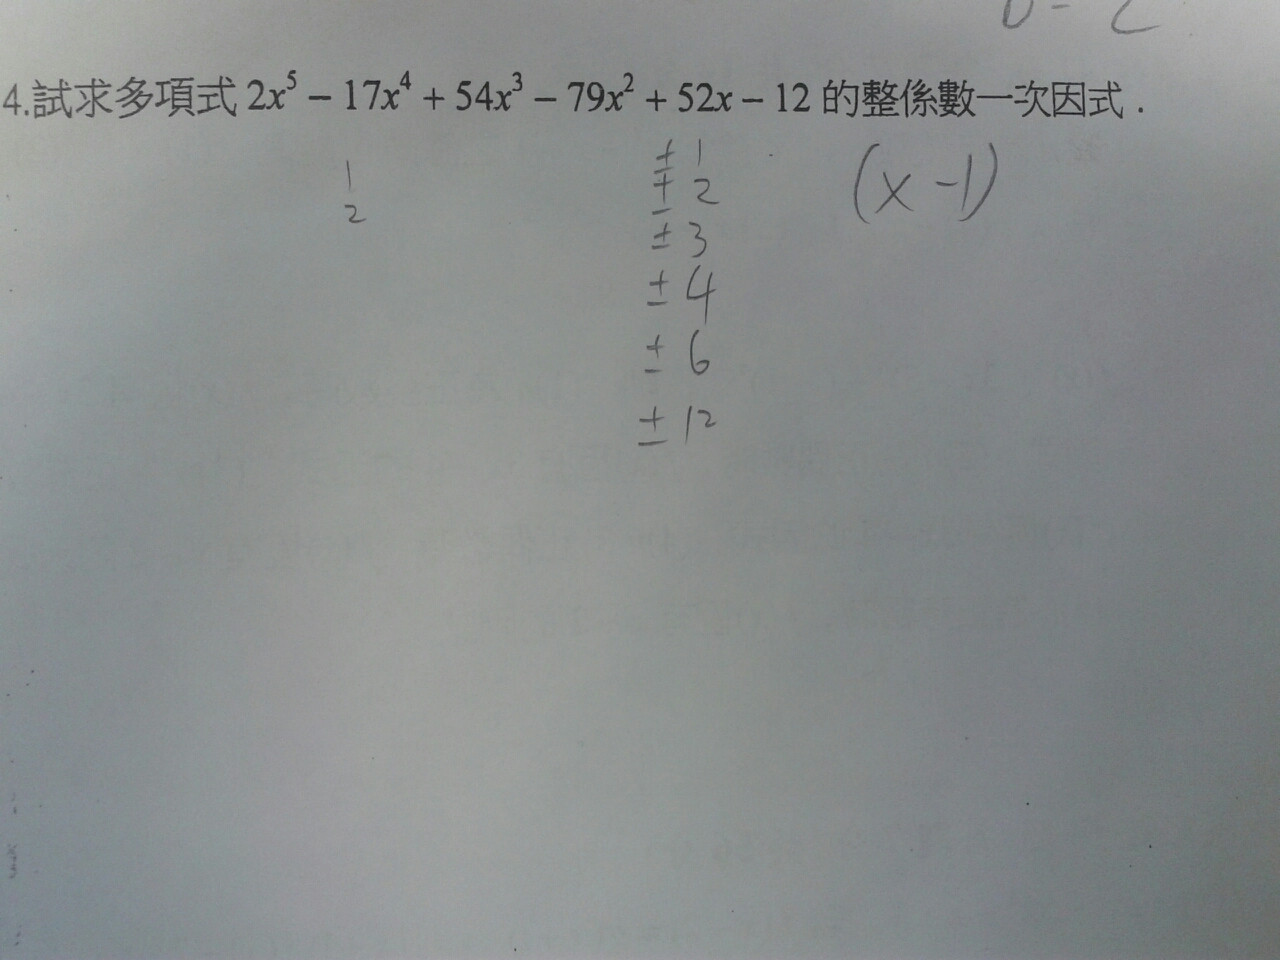 4.試求多項式 2x⁵ − 17x⁴ + 54x³ − 79x² + 52x − 12 的整係數一次因式 .
1
2
± 1
± 2
± 3
± 4
± 6
± 12
(x - 1)